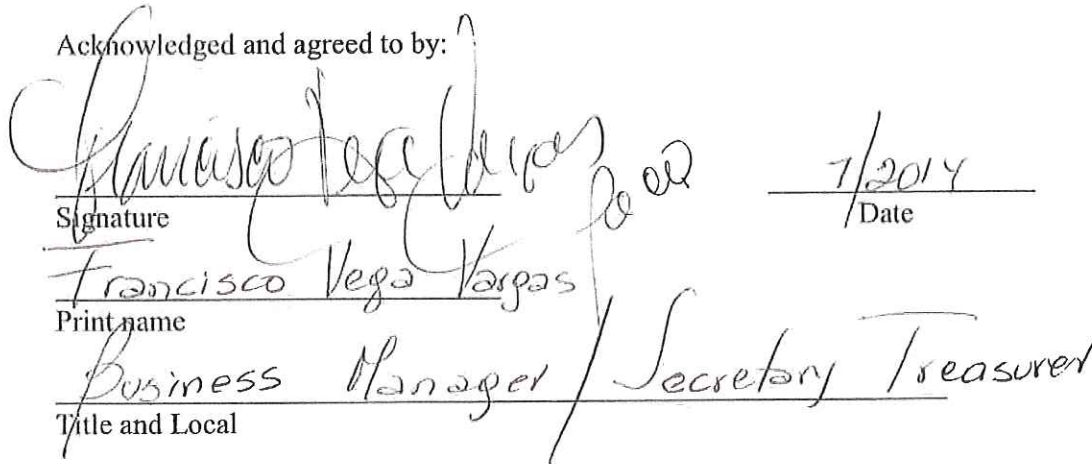 Acknowledged and agreed to by:
Francisco Vega Vargas
7/2014
Signature
Date
Francisco Vega Vargas
Print name
Business Manager / Secretary Treasurer
Title and Local